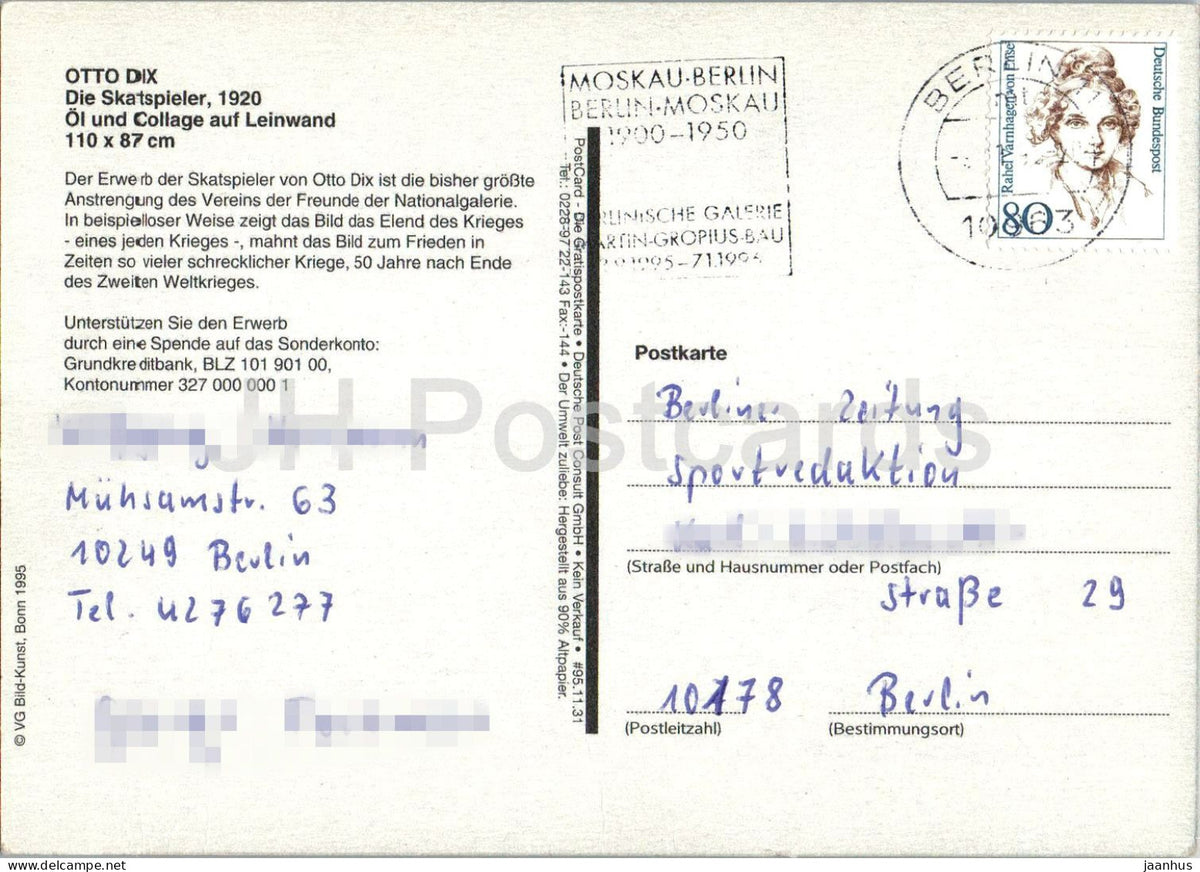 OTTO DIX
Die Skatspieler, 1920
Öl und Collage auf Leinwand
110 x 87 cm
Der Erwerb der Skatspieler von Otto Dix ist die bisher größte
Anstrengung des Vereins der Freunde der Nationalgalerie.
In beispielloser Weise zeigt das Bild das Elend des Krieges
- eines jeden Krieges -, mahnt das Bild zum Frieden in
Zeiten so vieler schrecklicher Kriege, 50 Jahre nach Ende
des Zweiten Weltkrieges.
Unterstützen Sie den Erwerb
durch eine Spende auf das Sonderkonto:
Grundkreditbank, BLZ 101 901 00,
Kontonummer 327 000 000 1
Mühsamstr. 63
10249 Berlin
Tel. 4276277
© VG Bild-Kunst, Bonn 1995
PostCard - Die Gratispostkarte • Deutsche Post Consult GmbH • Kein Verkauf • #95.11.31
Tel.: 0228-97722-143 Fax:-144 • Der Umwelt zuliebe: Hergestellt aus 90% Altpapier.
MOSKAU-BERLIN
BERLIN-MOSKAU
1900-1950
RLINISCHE GALERIE
ARTIN-GROPIUS-BAU
9.1995-7.1.1996
BERLIN
10963
Rahel Varnhagen von Ense
Deutsche Bundespost
80
Postkarte
Berliner Zeitung
Sportredaktion
(Straße und Hausnummer oder Postfach)
straße 29
10178 Berlin
(Postleitzahl) (Bestimmungsort)
JH Postcards
jaanhus